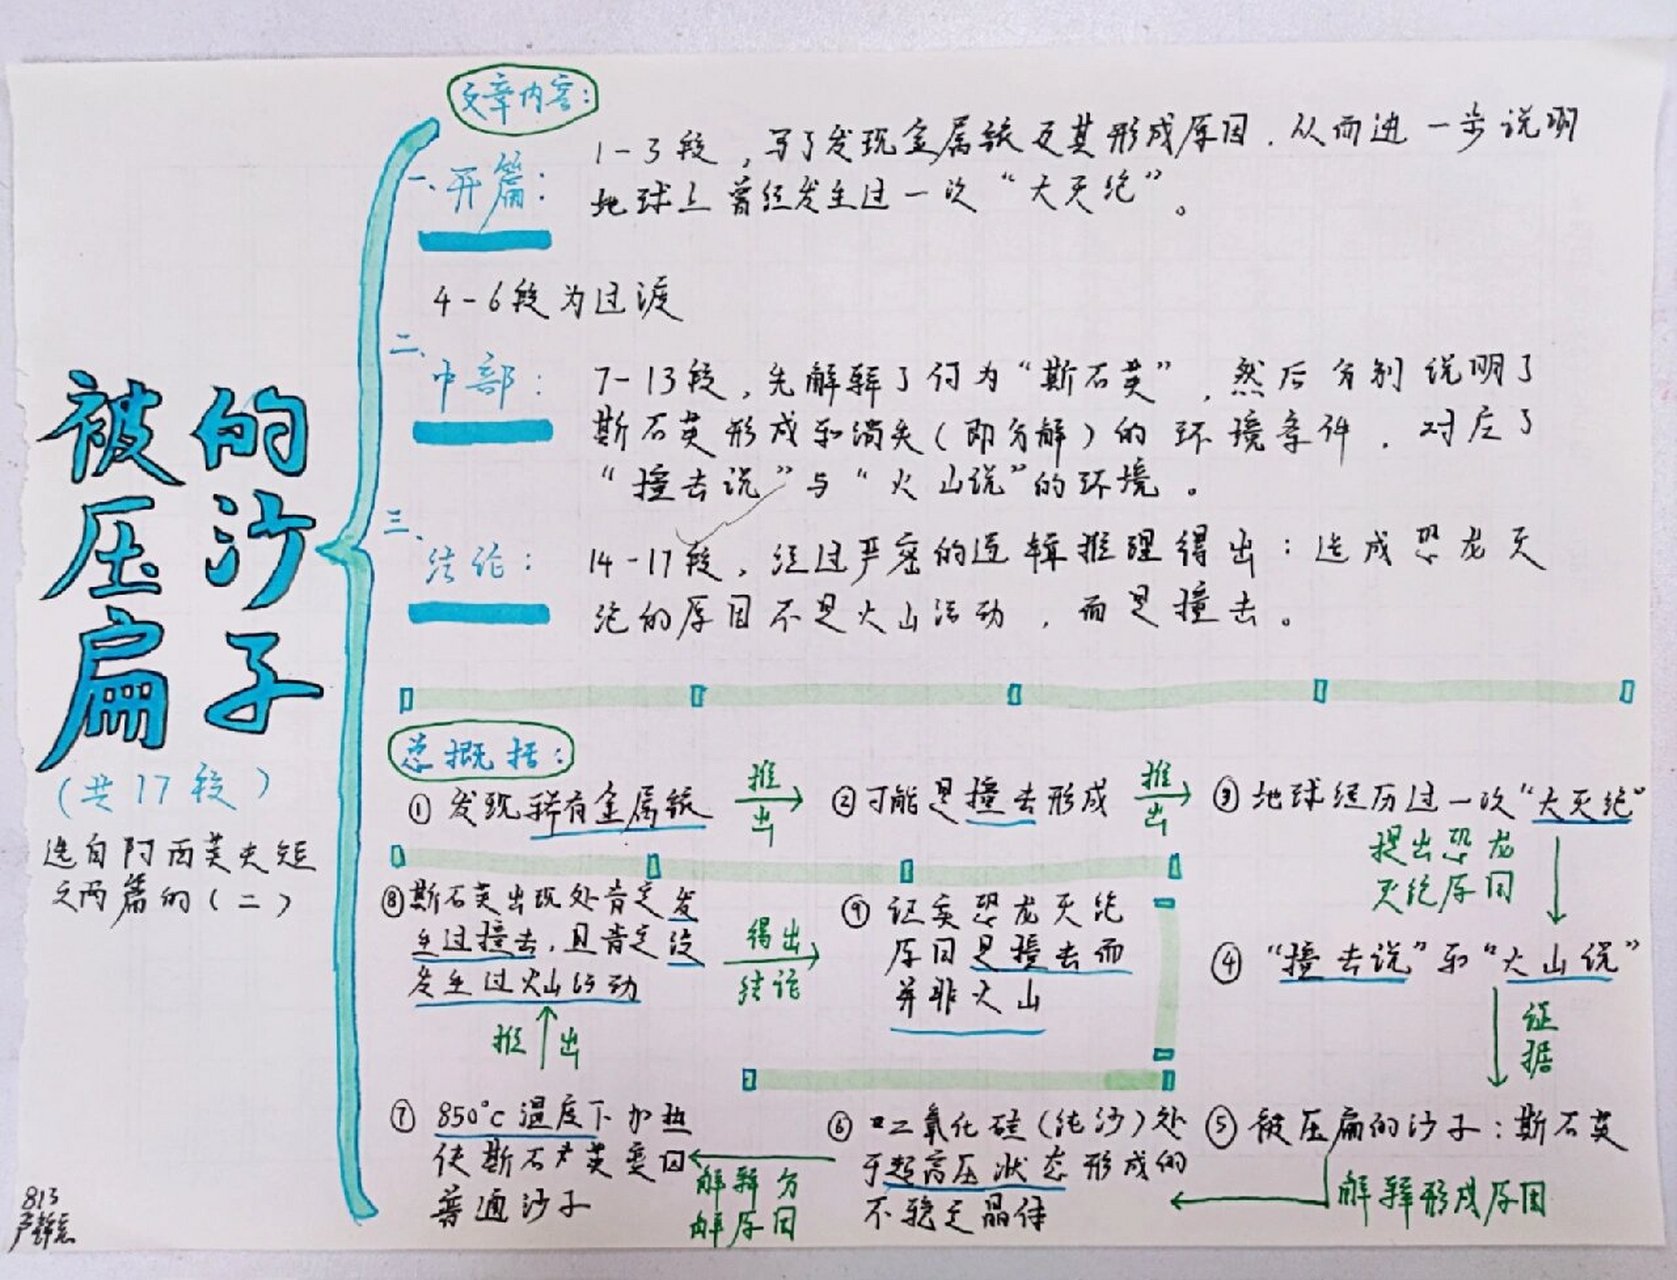 被压扁
的沙子
（共17段）
选自阿西莫夫短
文两篇的（二）
文章内容：
一、开篇：
1-3段，写了发现金属铱及其形成原因，从而进一步说明
地球上曾经发生过一次“大灭绝”。
4-6段为过渡
二、中部：
7-13段，先解释了何为“斯石英”，然后分别说明了
斯石英形成和消失（即分解）的环境条件，对应了
“撞击说”与“火山说”的环境。
三、结论：
14-17段，经过严密的逻辑推理得出：造成恐龙灭
绝的原因不是火山活动，而是撞击。
总概括：
①发现稀有金属铱
推出
②可能是撞击形成
推出
③地球经历过一次“大灭绝”
提出恐龙
灭绝原因
④“撞击说”和“火山说”
证据
⑤被压扁的沙子：斯石英
解释形成原因
⑥二氧化硅（纯沙）处
于超高压状态形成的
不稳定晶体
解释分
解原因
⑦850°C温度下加热
使斯石英变回
普通沙子
推出
⑧斯石英出现处肯定发
生过撞击，且肯定没
发生过火山活动
得出
结论
⑨证实恐龙灭绝
原因是撞击而
并非火山
813